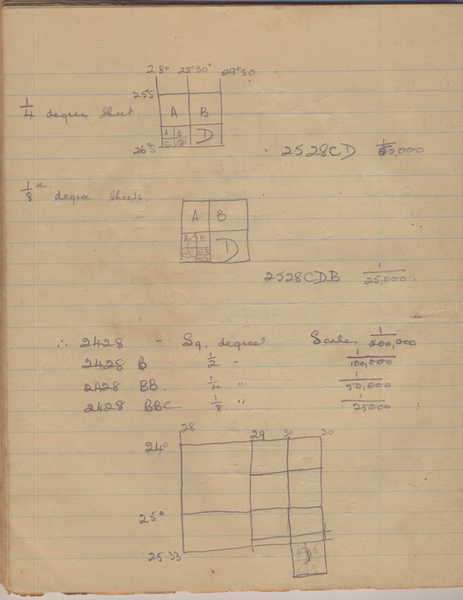 28° 25°30' 29°30
25S
1/4 degree Sheet A B
A B D
26S
2528CD
1/8 degree Sheets
A B
D
2528CDB 1/25,000
∴ 2428 - Sq. degree Scale 1/200,000
2428 B 1/2 " 1/100,000
2428 BB. 1/4 " 1/50,000
2428 BBC 1/8 " 1/25000
28 29 30
24°
25°
25.33
D